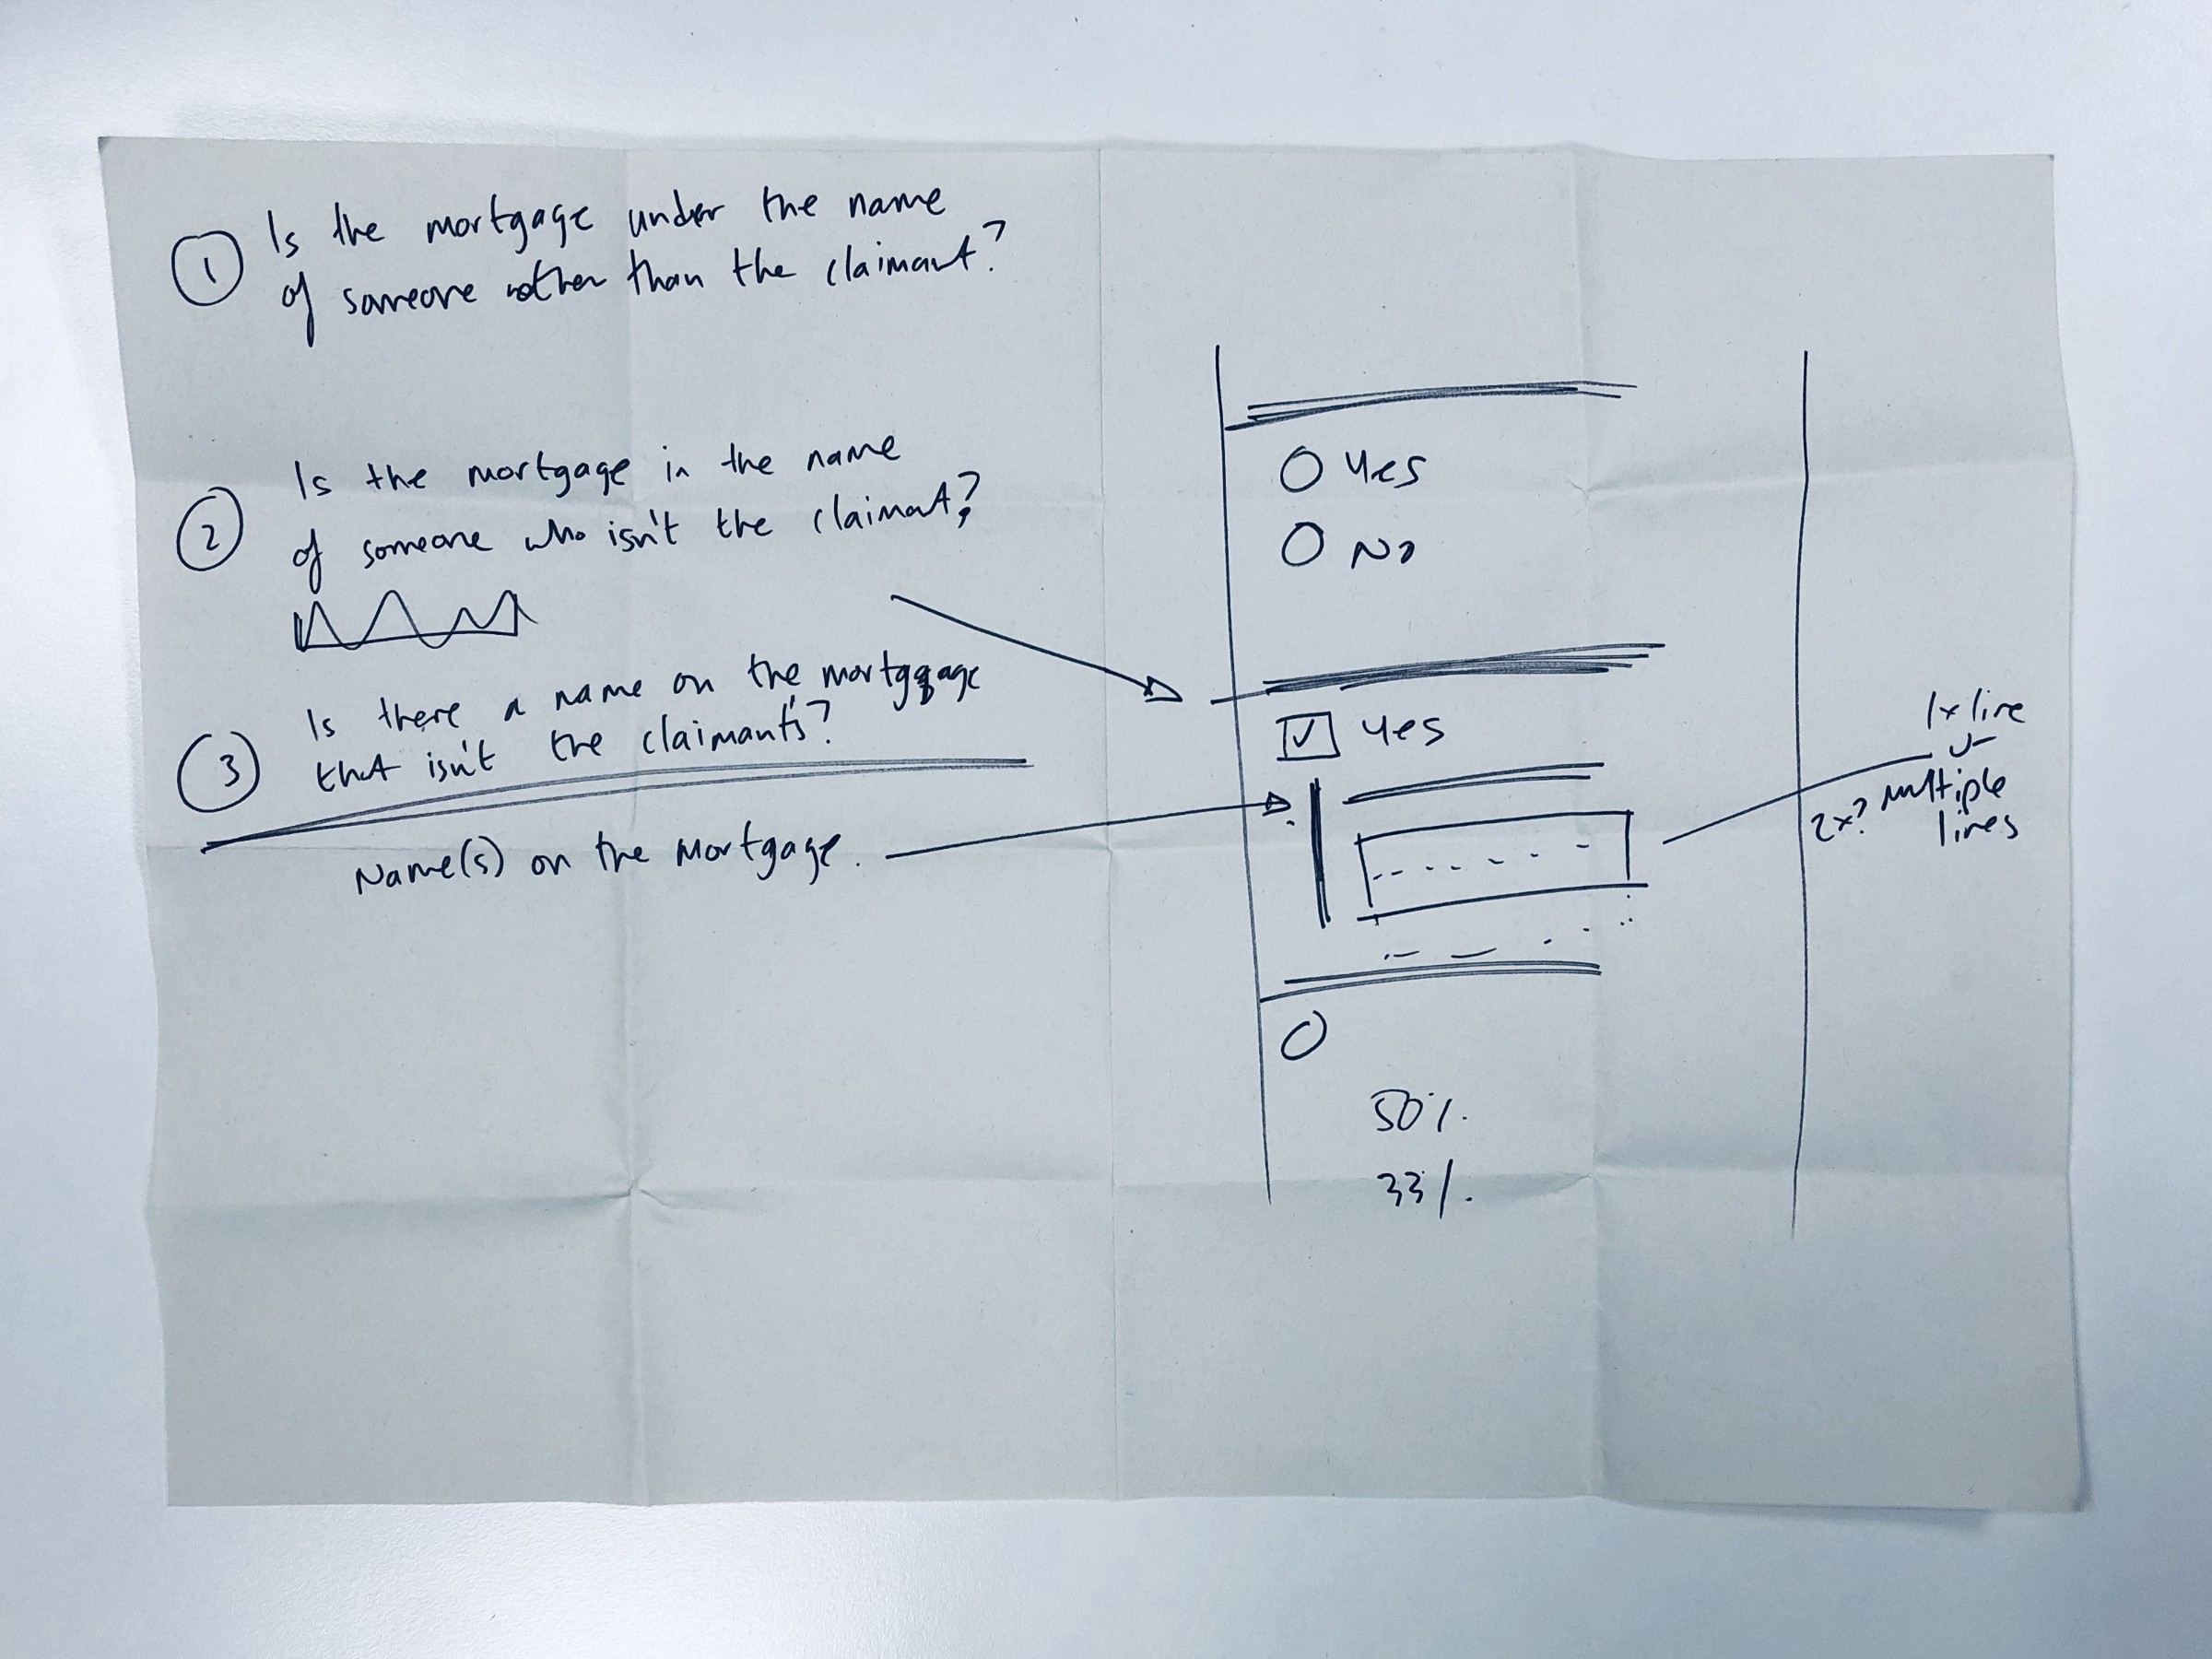 1 Is the mortgage under the name
of someone other than the claimant?
2 Is the mortgage in the name
of someone who isn't the claimant?
3 Is there a name on the mortgage
that isn't the claimant's?
Name(s) on the mortgage.
Yes
No
Yes
1x line
multiple
2x?
lines
50%.
33%.